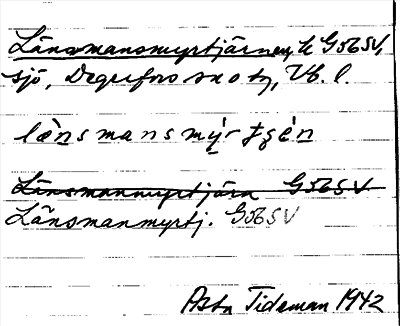 Länsmansmyrtjärnen, k G56SV,
sjö, Degerfors sn o tg, Vb. l.
länsmansmýrtjén
Länsmanmyrtjärn G56SV
Länsmanmyrtj. G56SV
Asta Tideman 1942